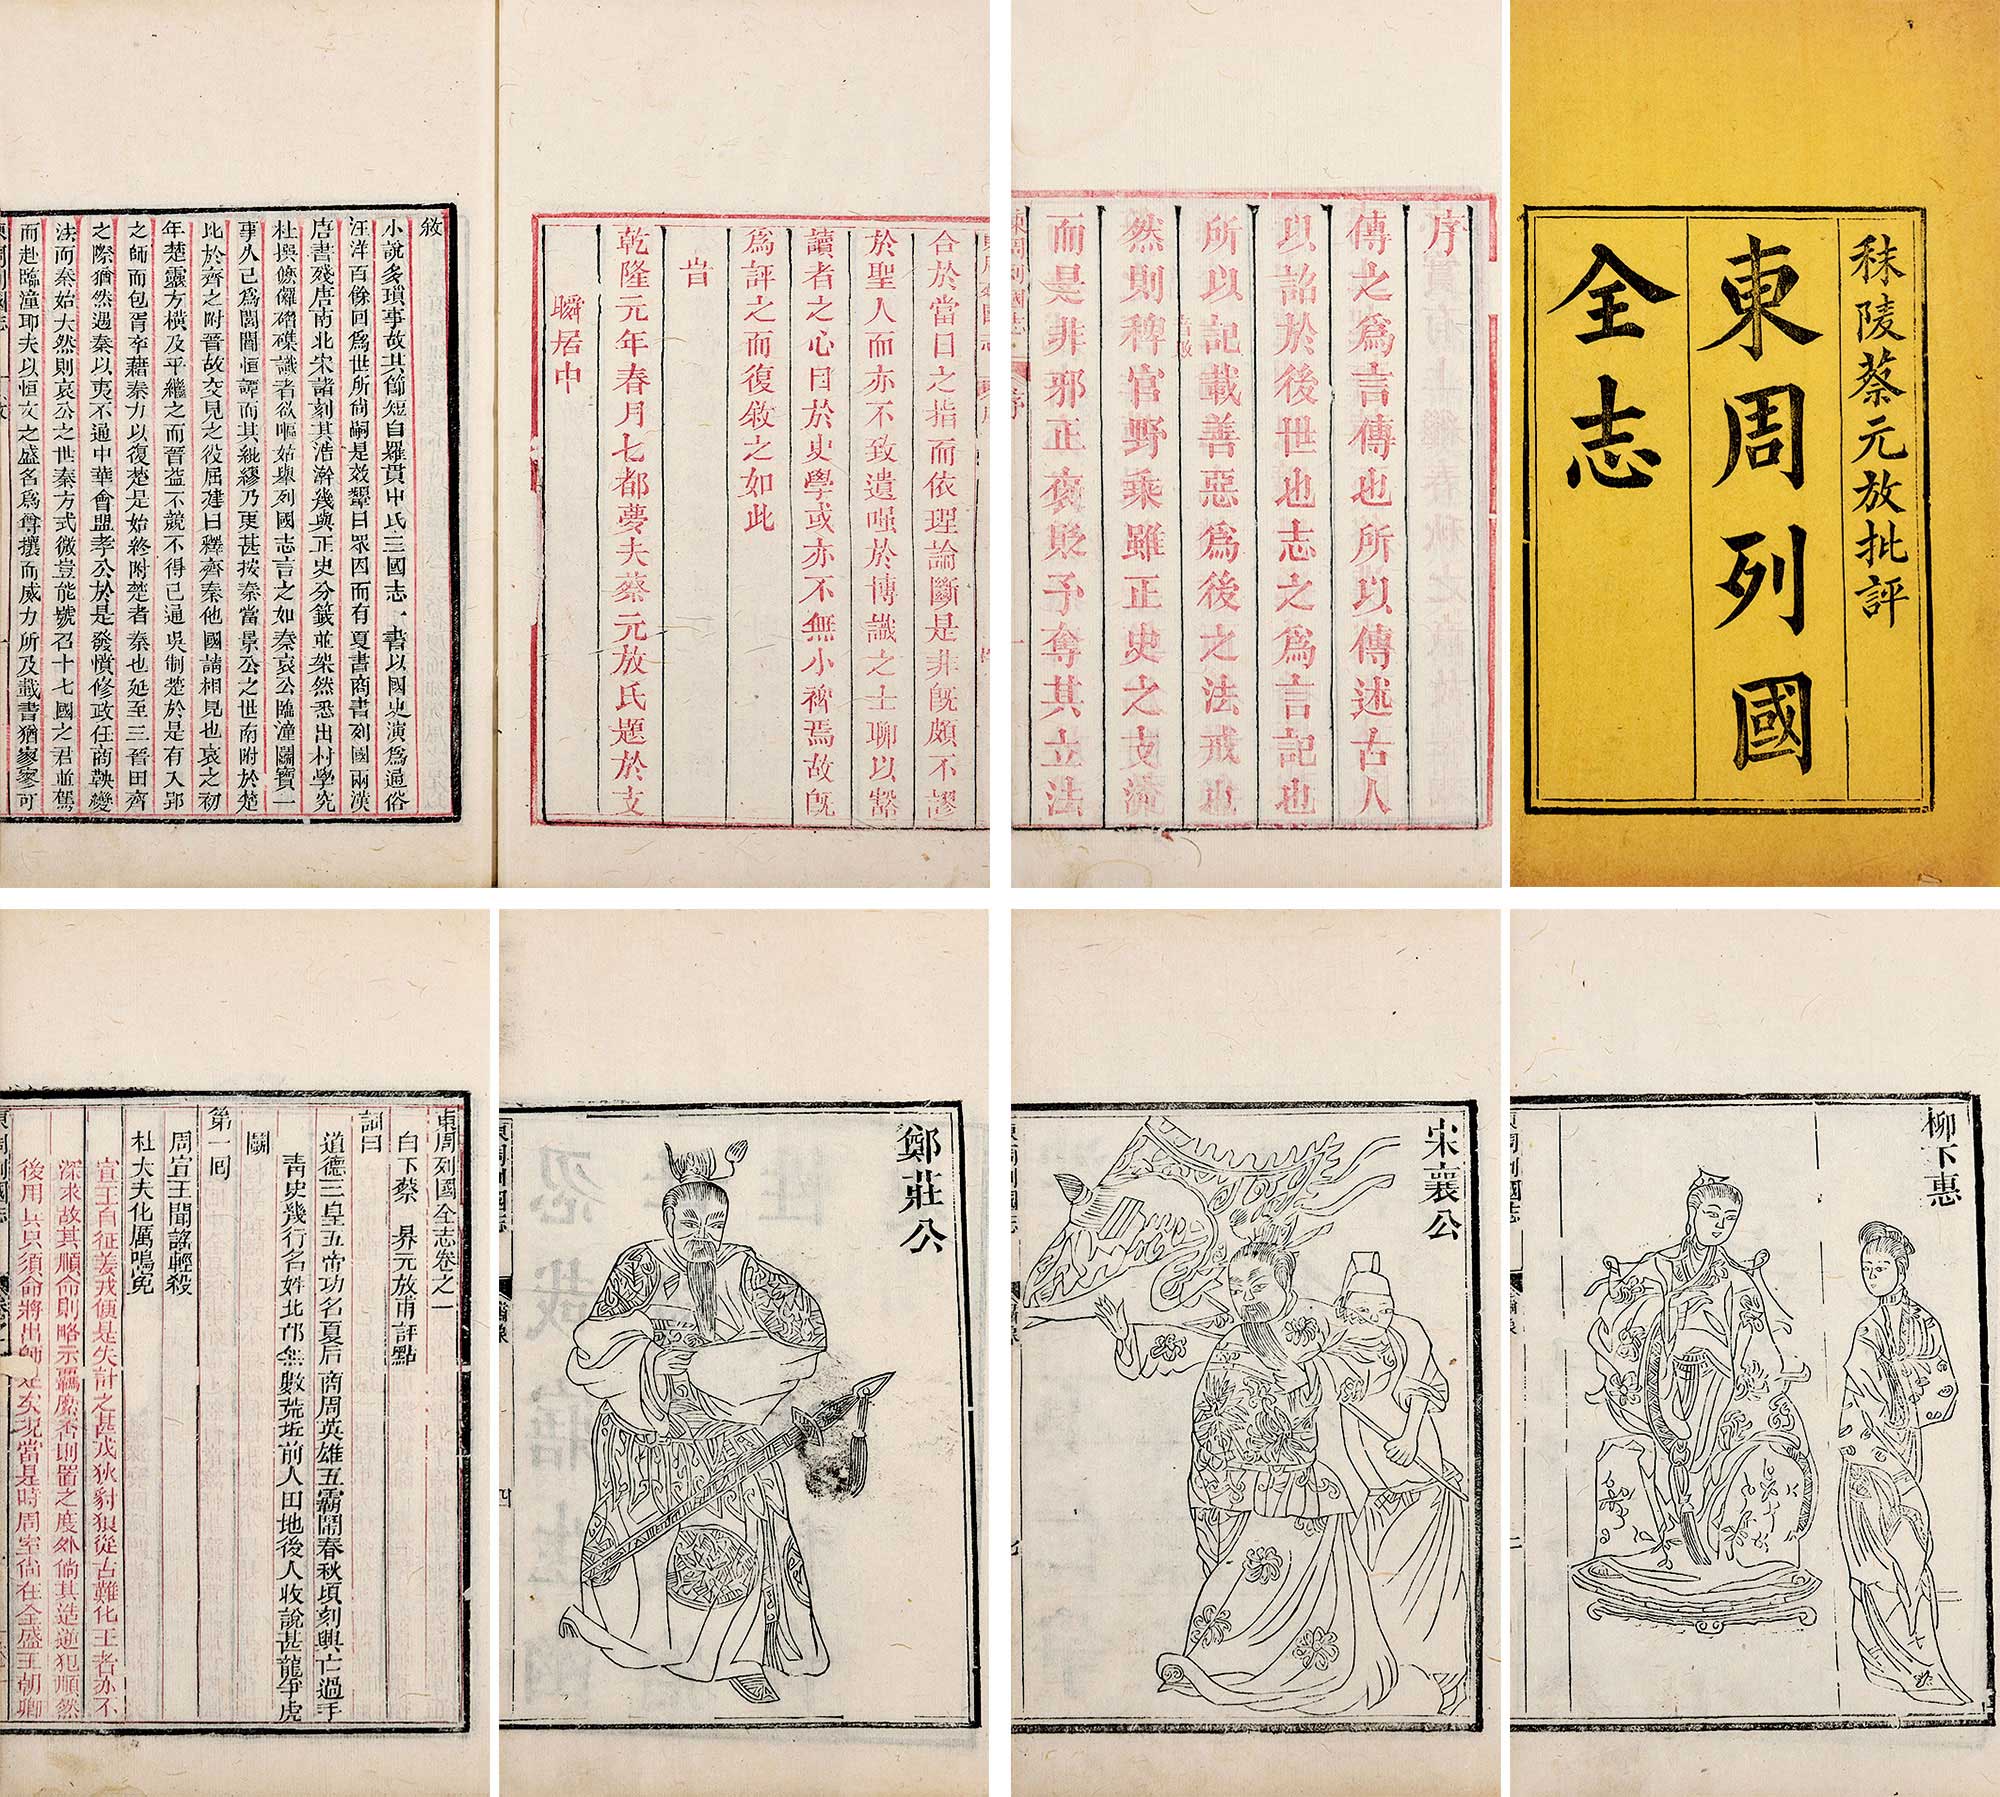 秣陵蔡元放批評
東周列國
全志
序
傳之爲言傳也所以傳述古人
以詔於後世也志之爲言記也
所以記載善惡爲後之法戒也
然則稗官野乘雖正史之支流
而是非邪正褒貶予奪其立法
合於當日之指而依理論斷是非既頗不謬
於聖人而亦不致遺嘆於博識之士聊以豁
讀者之心目於史學或亦不無小裨焉故既
爲評之而復敘之如此
旹
乾隆元年春月七都夢夫蔡元放氏題於支
瞬居中
敘
小說多瑣事故其節短自羅貫中氏三國志一書以國史演爲通俗
汪洋百餘回爲世所尚嗣是效顰日眾因而有夏書商書列國兩漢
唐書殘唐南北宋諸刻其浩瀚幾與正史分籤並架然悉出村學究
杜撰
識者欲嘔始舉列國志言之如秦哀公臨潼鬭寶一
事久已爲閭閻恒譚而其紕繆乃更甚按秦當景公之世南附於楚
比於齊之附晉故交見之役屈建曰釋齊秦他國請相見也哀之初
年楚靈方橫及平繼之而晉益不競不得已通吳制楚於是有入郢
之師而包胥卒藉秦力以復楚是始終附楚者秦也延至三晉田齊
之際猶然遇秦以夷不通中華會盟孝公於是發憤修政任商鞅變
法而秦始大然則哀公之世秦方式微豈能號召十七國之君並駕
而赴臨潼耶夫以恒文之盛名爲尊攘而威力所及載書猶寥寥可
柳下惠
宋襄公
鄭莊公
四
東周列國全志卷之一
白下蔡 昇元放甫評點
詞曰
道德三皇五帝功名夏后商周英雄五霸鬧春秋頃刻興亡過手
青史幾行名姓北邙無數荒坵前人田地後人收說甚龍爭虎
鬬
第一回
周宣王聞謠輕殺
杜大夫化厲鳴冤
宣王自征姜戎便是失計之甚戎狄豺狼從古難化王者亦不
深求故其順命則略示羈縻否則置之度外倘其造逆犯順然
後用兵只須命將出師
當是時周室尚在全盛王朝卿